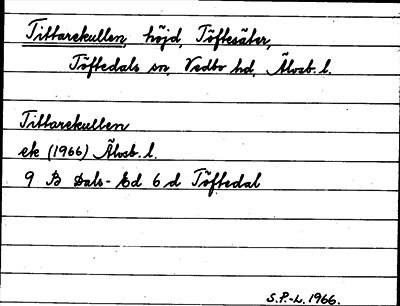 Tittarekullen, höjd, Töftesäter,
Töftedals sn, Vedbo hd, Älvsb. l.
Tittarekullen
ek (1966) Älvsb. l.
9 B Dals-Ed 6 d Töftedal
S.P.-L. 1966.